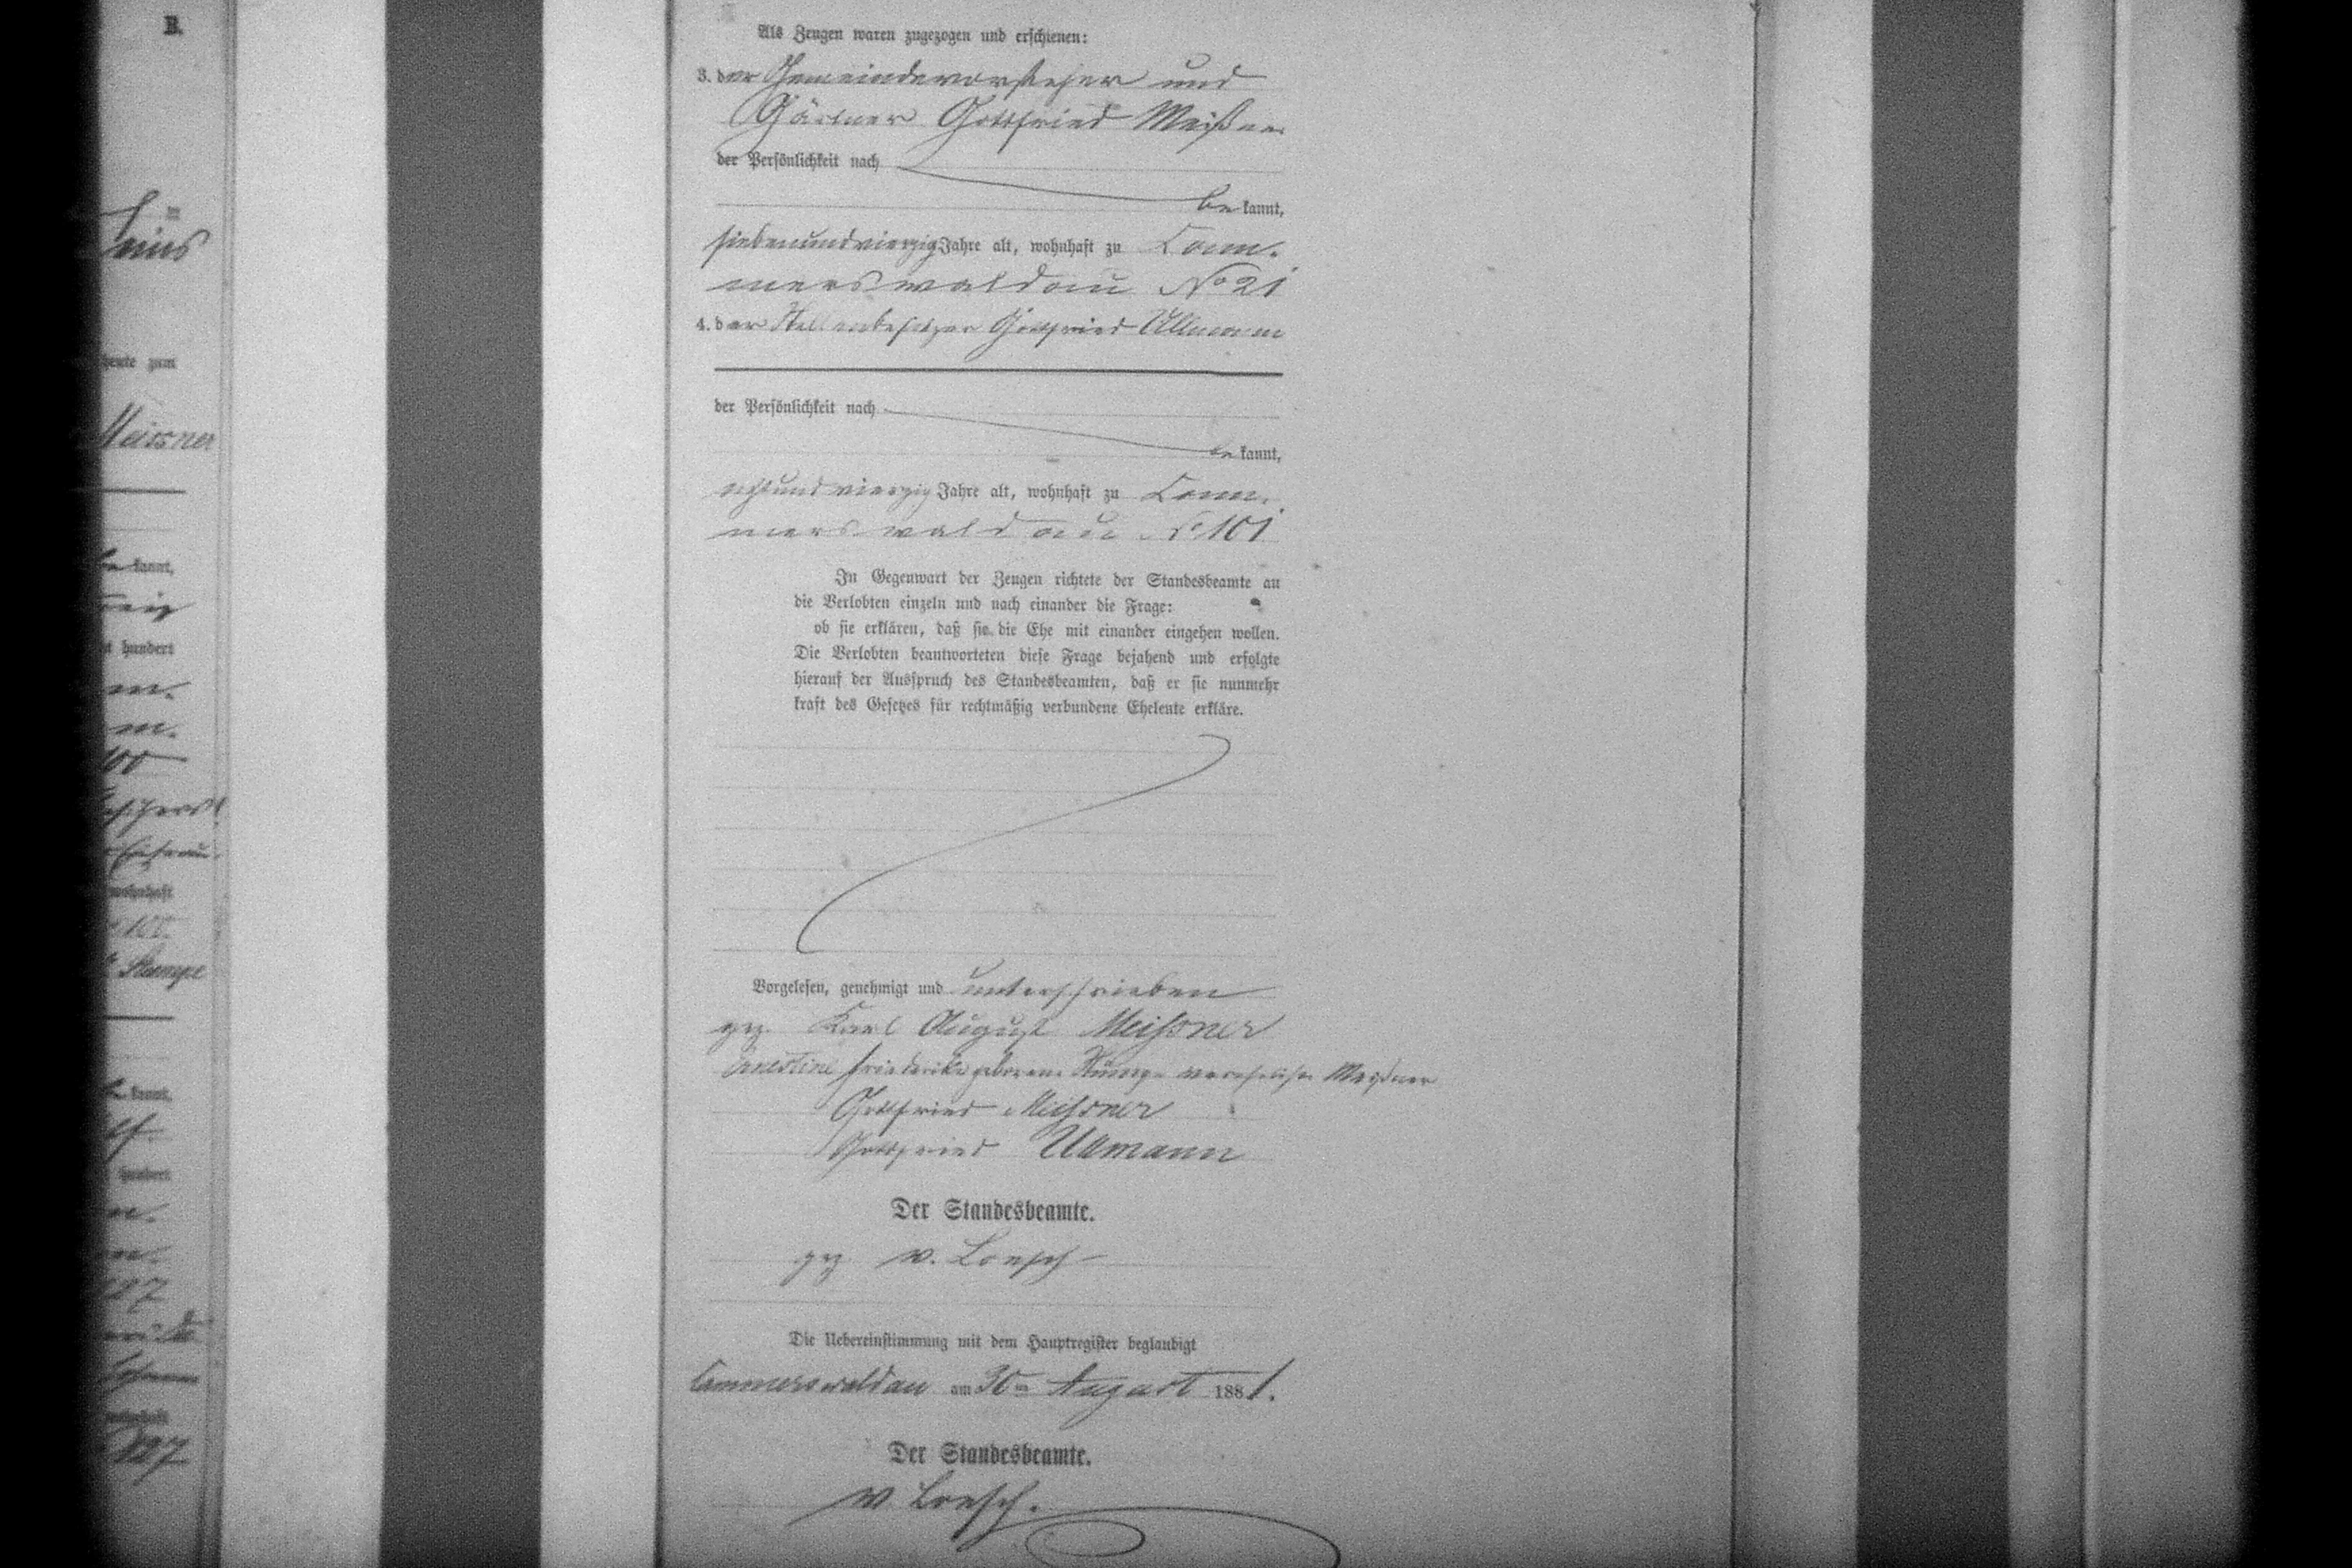 B.
heute zum
Meissner
kannt,
hundert
m.
m.
100
wohnhaft
100.
Stumpe
kannt,
hundert
n.
m.
127
wohnhaft
127
Als Zeugen waren zugezogen und erschienen:
3. der Gemeindevorsteher und
Gärtner Gottfried Meißner
der Persönlichkeit nach
be kannt,
siebenundvierzig Jahre alt, wohnhaft zu Cam-
merswaldau No 21
4. der Stellenbesitzer Gottfried Ullmann
der Persönlichkeit nach
be kannt,
achtundvierzig Jahre alt, wohnhaft zu Cam-
merswaldau No 101
In Gegenwart der Zeugen richtete der Standesbeamte an
die Verlobten einzeln und nach einander die Frage:
ob sie erklären, daß sie die Ehe mit einander eingehen wollen.
Die Verlobten beantworteten diese Frage bejahend und erfolgte
hierauf der Ausspruch des Standesbeamten, daß er sie nunmehr
kraft des Gesetzes für rechtmäßig verbundene Eheleute erkläre.
Vorgelesen, genehmigt und unterschrieben
gez. Karl August Meißner
Ernestine Friederike geborene Stumpe verehelichte Meißner
Gottfried Meißner
Gottfried Ullmann
Der Standesbeamte.
gez. v. Loesch
Die Uebereinstimmung mit dem Hauptregister beglaubigt
Cammerswaldau am 30ten August 1881.
Der Standesbeamte.
v Loesch.